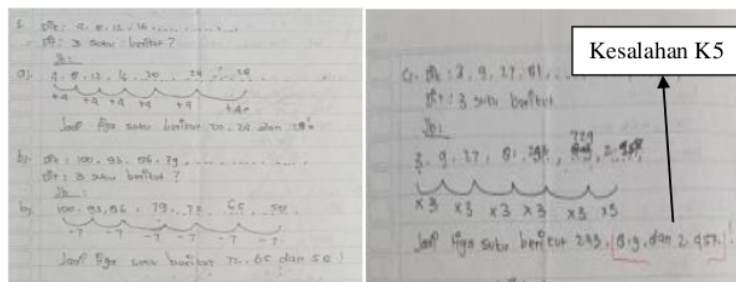 1. Dik : 4, 8, 12, 16, ...
Dit : 3 suku berikut ?
Jb :
a). 4, 8, 12, 16, 20, 24, 28
+4 +4 +4 +4 +4 +4
Jadi tiga suku berikut 20, 24 dan 28
b). Dik : 100, 93, 86, 79, ...
Dit : 3 suku berikut ?
Jb :
b). 100, 93, 86, 79, 72, 65, 58
-7 -7 -7 -7 -7 -7
Jadi tiga suku berikut 72, 65 dan 58
Kesalahan K5
c). Dik : 3, 9, 27, 81, ...
Dit : 3 suku berikut
Jb :
729
3, 9, 27, 81, 243,
x3 x3 x3 x3 x3 x3
Jadi tiga suku berikut 243, dan 2.457